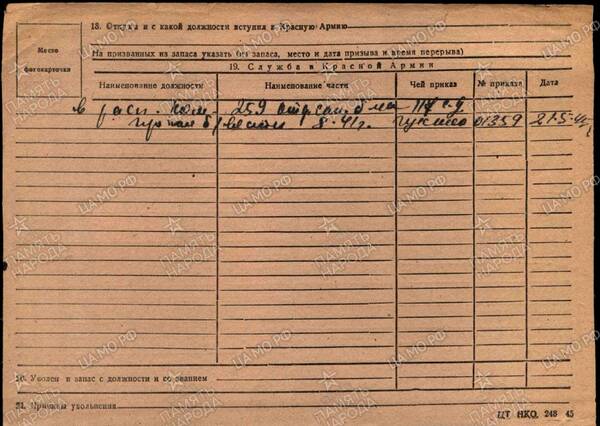 18. Откуда и с какой должности вступил в Красную Армию
Место фотокарточки
На призванных из запаса указать (из запаса, место и дата призыва и время перерыва)
19. Служба в Красной Армии
Наименование должности Наименование части Чей приказ № приказа Дата
в расп. ком. 259
8-41г. 01359 21-5-45
20. Уволен в запас с должности и со званием
21. Причины увольнения
ЦТ НКО. 248 45
ЦАМО.РФ
ПАМЯТЬ НАРОДА